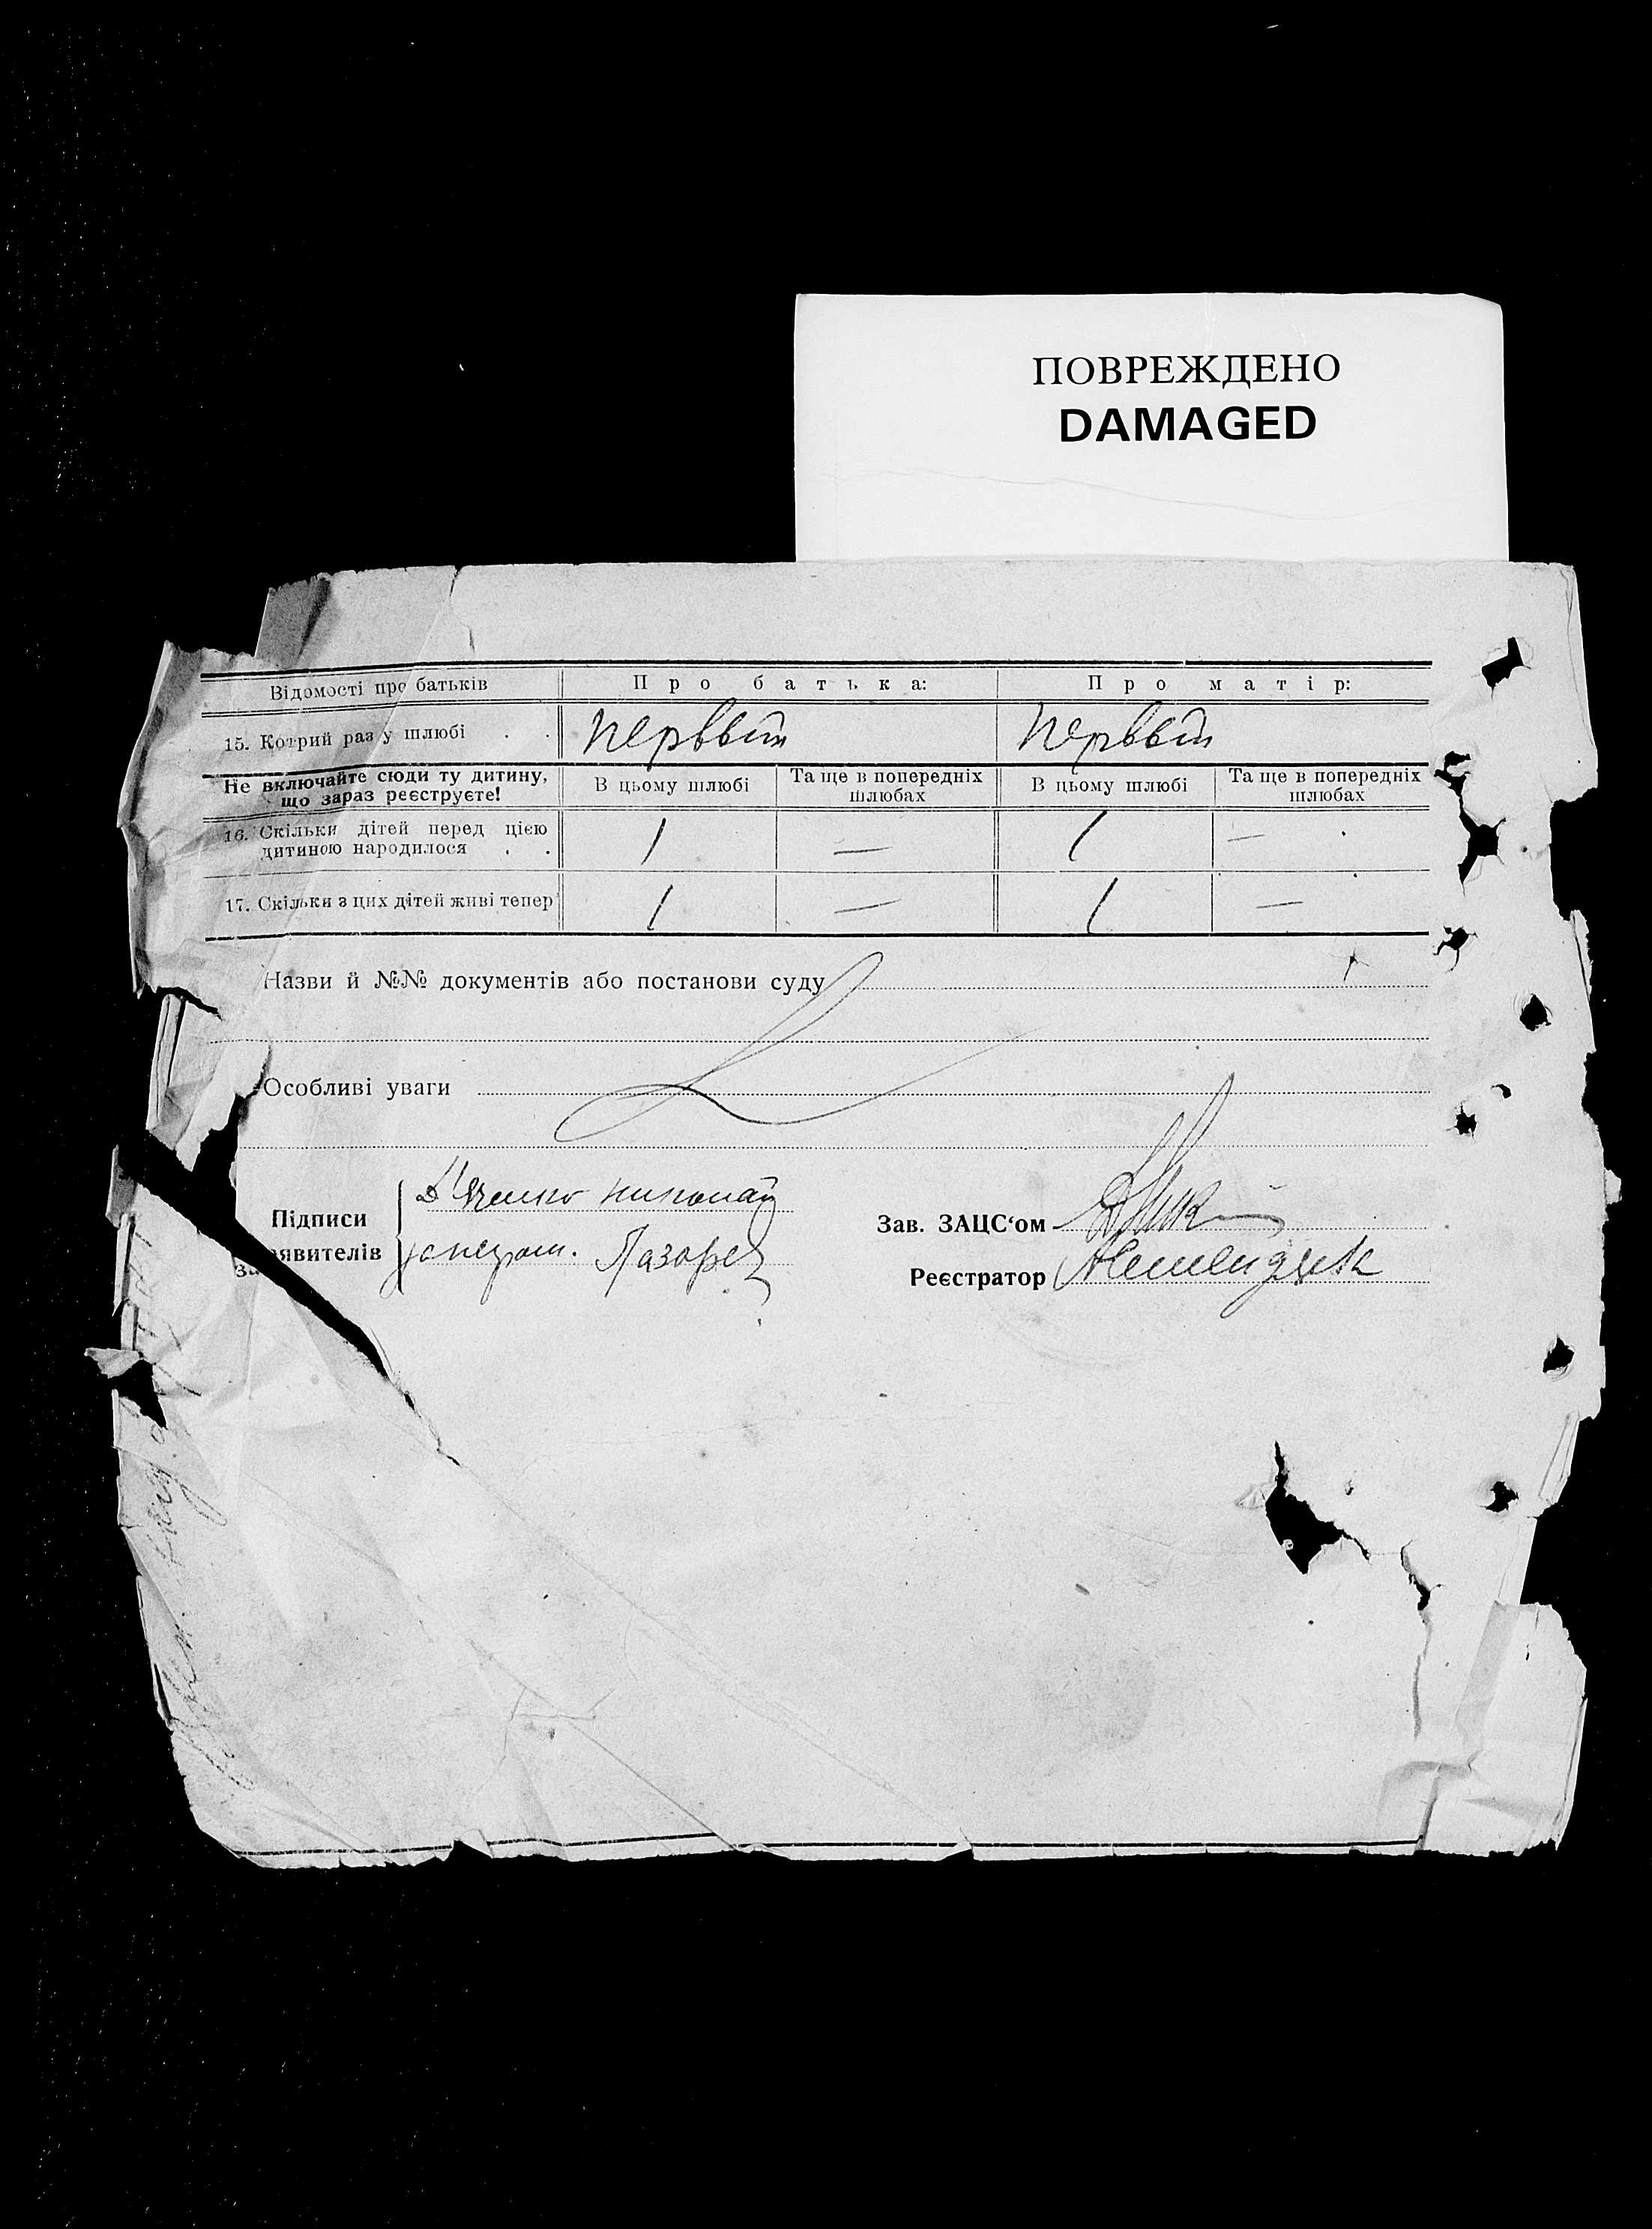 ПОВРЕЖДЕНО
DAMAGED
Відомості про батьків Про батька: Про матір:
15. Котрий раз у шлюбі . . первый первый
Не включайте сюди ту дитину, що зараз реєструєте! В цьому шлюбі Та ще в попередніх шлюбах В цьому шлюбі Та ще в попередніх шлюбах
16. Скільки дітей перед цією дитиною народилося . . 1 — 1 —
17. Скільки з цих дітей живі тепер 1 — 1 —
Назви й №№ документів або постанови суду
Особливі уваги
Підписи заявителів
николай
Лазорев
Зав. ЗАЦС‘ом
Реєстратор